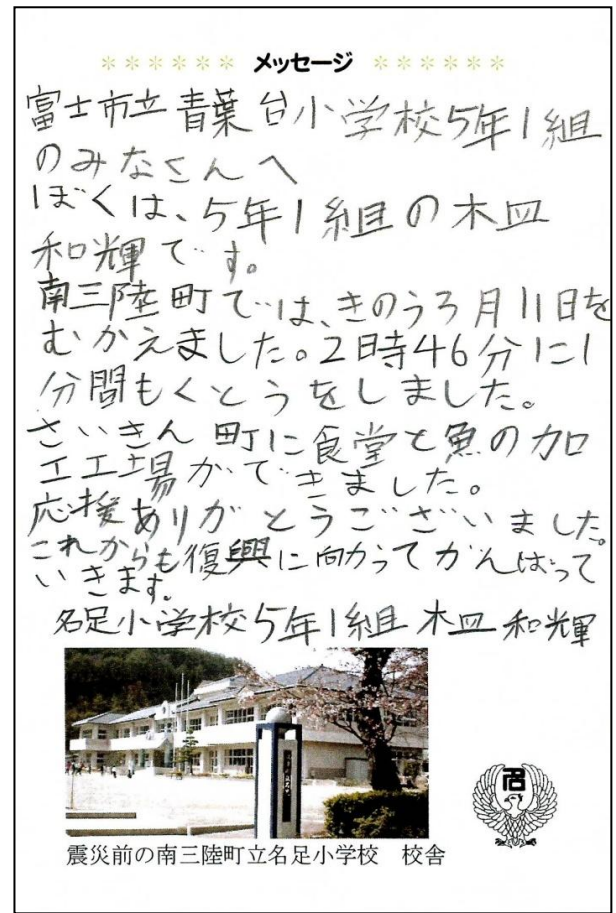 ＊＊＊＊＊＊ メッセージ ＊＊＊＊＊＊
富士市立青葉台小学校5年1組
のみなさんへ
ぼくは、5年1組の木皿
和輝です。
南三陸町では、きのう3月11日を
むかえました。2時46分に1
分間もくとうをしました。
さいきん町に食堂と魚の加
工工場ができました。
応援ありがとうございました。
これからも復興に向かってがんばって
いきます。
名足小学校5年1組 木皿 和輝
名
震災前の南三陸町立名足小学校 校舎